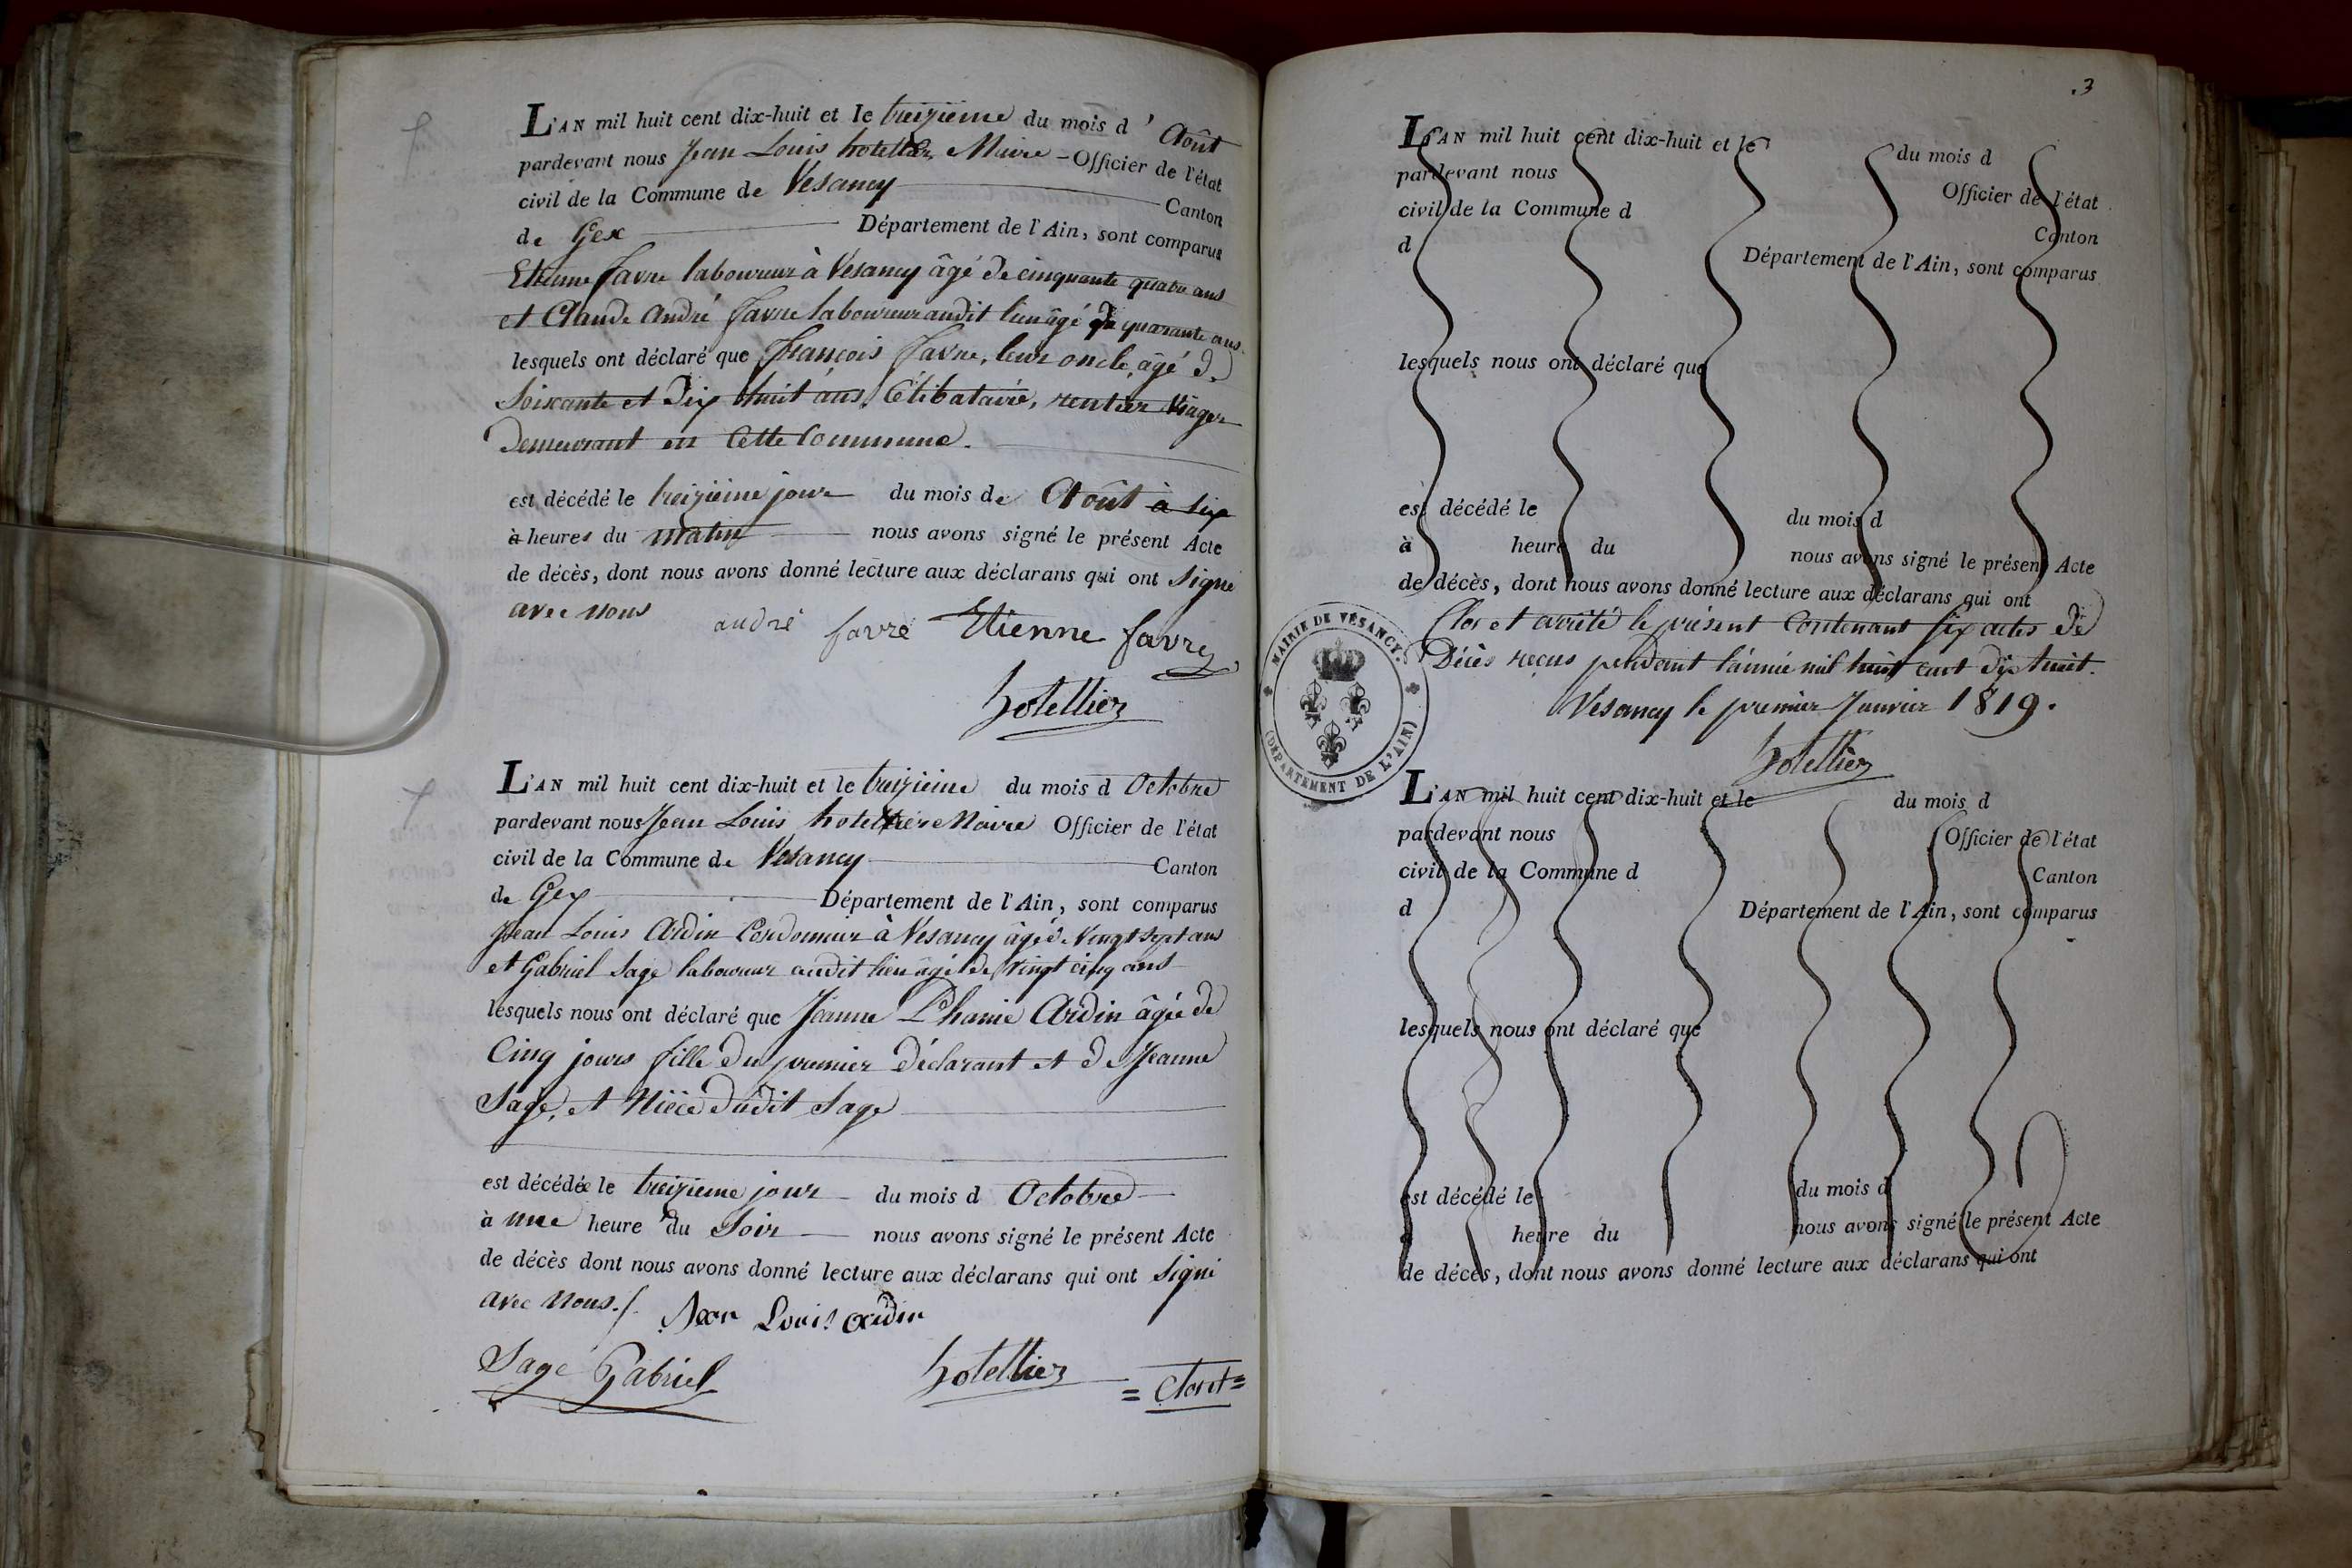 L'AN mil huit cent dix-huit et le treizième du mois d'Août
pardevant nous Jean Louis hotellier Maire - Officier de l'état
civil de la Commune de Vesancy Canton
de Gex Département de l'Ain, sont comparus
Etienne favre laboureur à Vesancy âgé de cinquante quatre ans
et Claude André favre laboureur audit lieu âgé de quarante ans
lesquels ont déclaré que françois favre, leur oncle, âgé de
Soixante et dix huit ans, Célibataire, rentier Viager
Demeurant en Cette Commune.
est décédé le treizième jour du mois de Août à six
à heures du matin nous avons signé le présent Acte
de décès, dont nous avons donné lecture aux déclarans qui ont signé
avec nous andré favre Etienne favre
hotellier
L'AN mil huit cent dix-huit et le treizième du mois d Octobre
pardevant nous Jean Louis hotellier Maire Officier de l'état
civil de la Commune de Vesancy Canton
de Gex Département de l'Ain, sont comparus
Jean Louis Ardin Cordonnier à Vesancy âgé de Vingt sept ans
et Gabriel Sage laboureur audit lieu âgé de Vingt cinq ans
lesquels nous ont déclaré que Jeanne Ardin âgée de
Cinq jours fille du premier Déclarant et de Jeanne
Sage, et Nièce dudit Sage
est décédée le treizieme jour du mois d Octobre
à une heure du Soir nous avons signé le présent Acte
de décès dont nous avons donné lecture aux déclarans qui ont Signé
avec nous./. Jean Louis ardin
Sage Gabriel hotellier = Clos et =
.3
L'AN mil huit cent dix-huit et le du mois d
pardevant nous Officier de l'état
civil de la Commune d Canton
d Département de l'Ain, sont comparus
lesquels nous ont déclaré que
est décédé le du mois d
à heure du nous avons signé le présent Acte
de décès, dont nous avons donné lecture aux déclarans qui ont
Clos et arrêté le présent Contenant six actes de
Décès reçus pendant l'année mil huit cent dix huit.
Vesancy le premier Janvier 1819.
hotellier
MAIRIE DE VÉSANCY.
(DÉPARTEMENT DE L'AIN)
L'AN mil huit cent dix-huit et le du mois d
pardevant nous Officier de l'état
civil de la Commune d Canton
d Département de l'Ain, sont comparus
lesquels nous ont déclaré que
est décédé le du mois d
à heure du nous avons signé le présent Acte
de décès, dont nous avons donné lecture aux déclarans qui ont